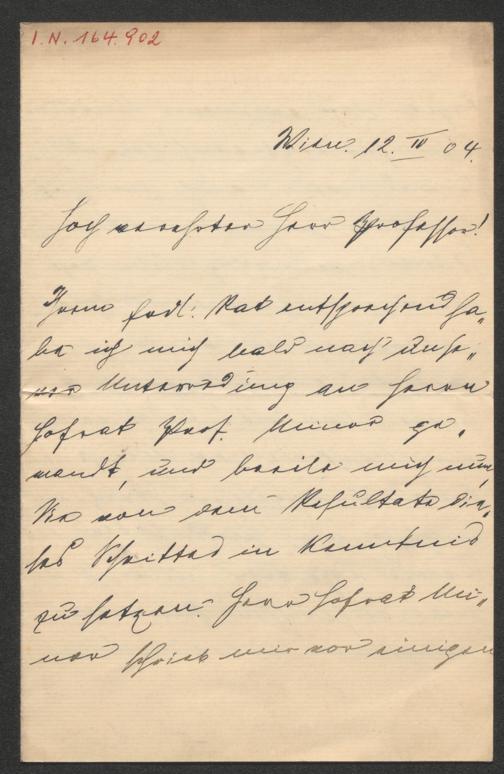 I.N. 164.902
Wien. 12. IV 04.
Hochverehrter Herr Professor!
Ihrem frdl. Rat entsprechend ha„
be ich mich bald nach unse„
rer Unterredung an Herrn
Hofrat Prof. Minor ge„
wandt, und beeile mich nun,
Sie von dem Resultate die„
ses Schrittes in Kenntnis
zu setzen. Herr Hofrat Mi„
nor schrieb mir vor einigen